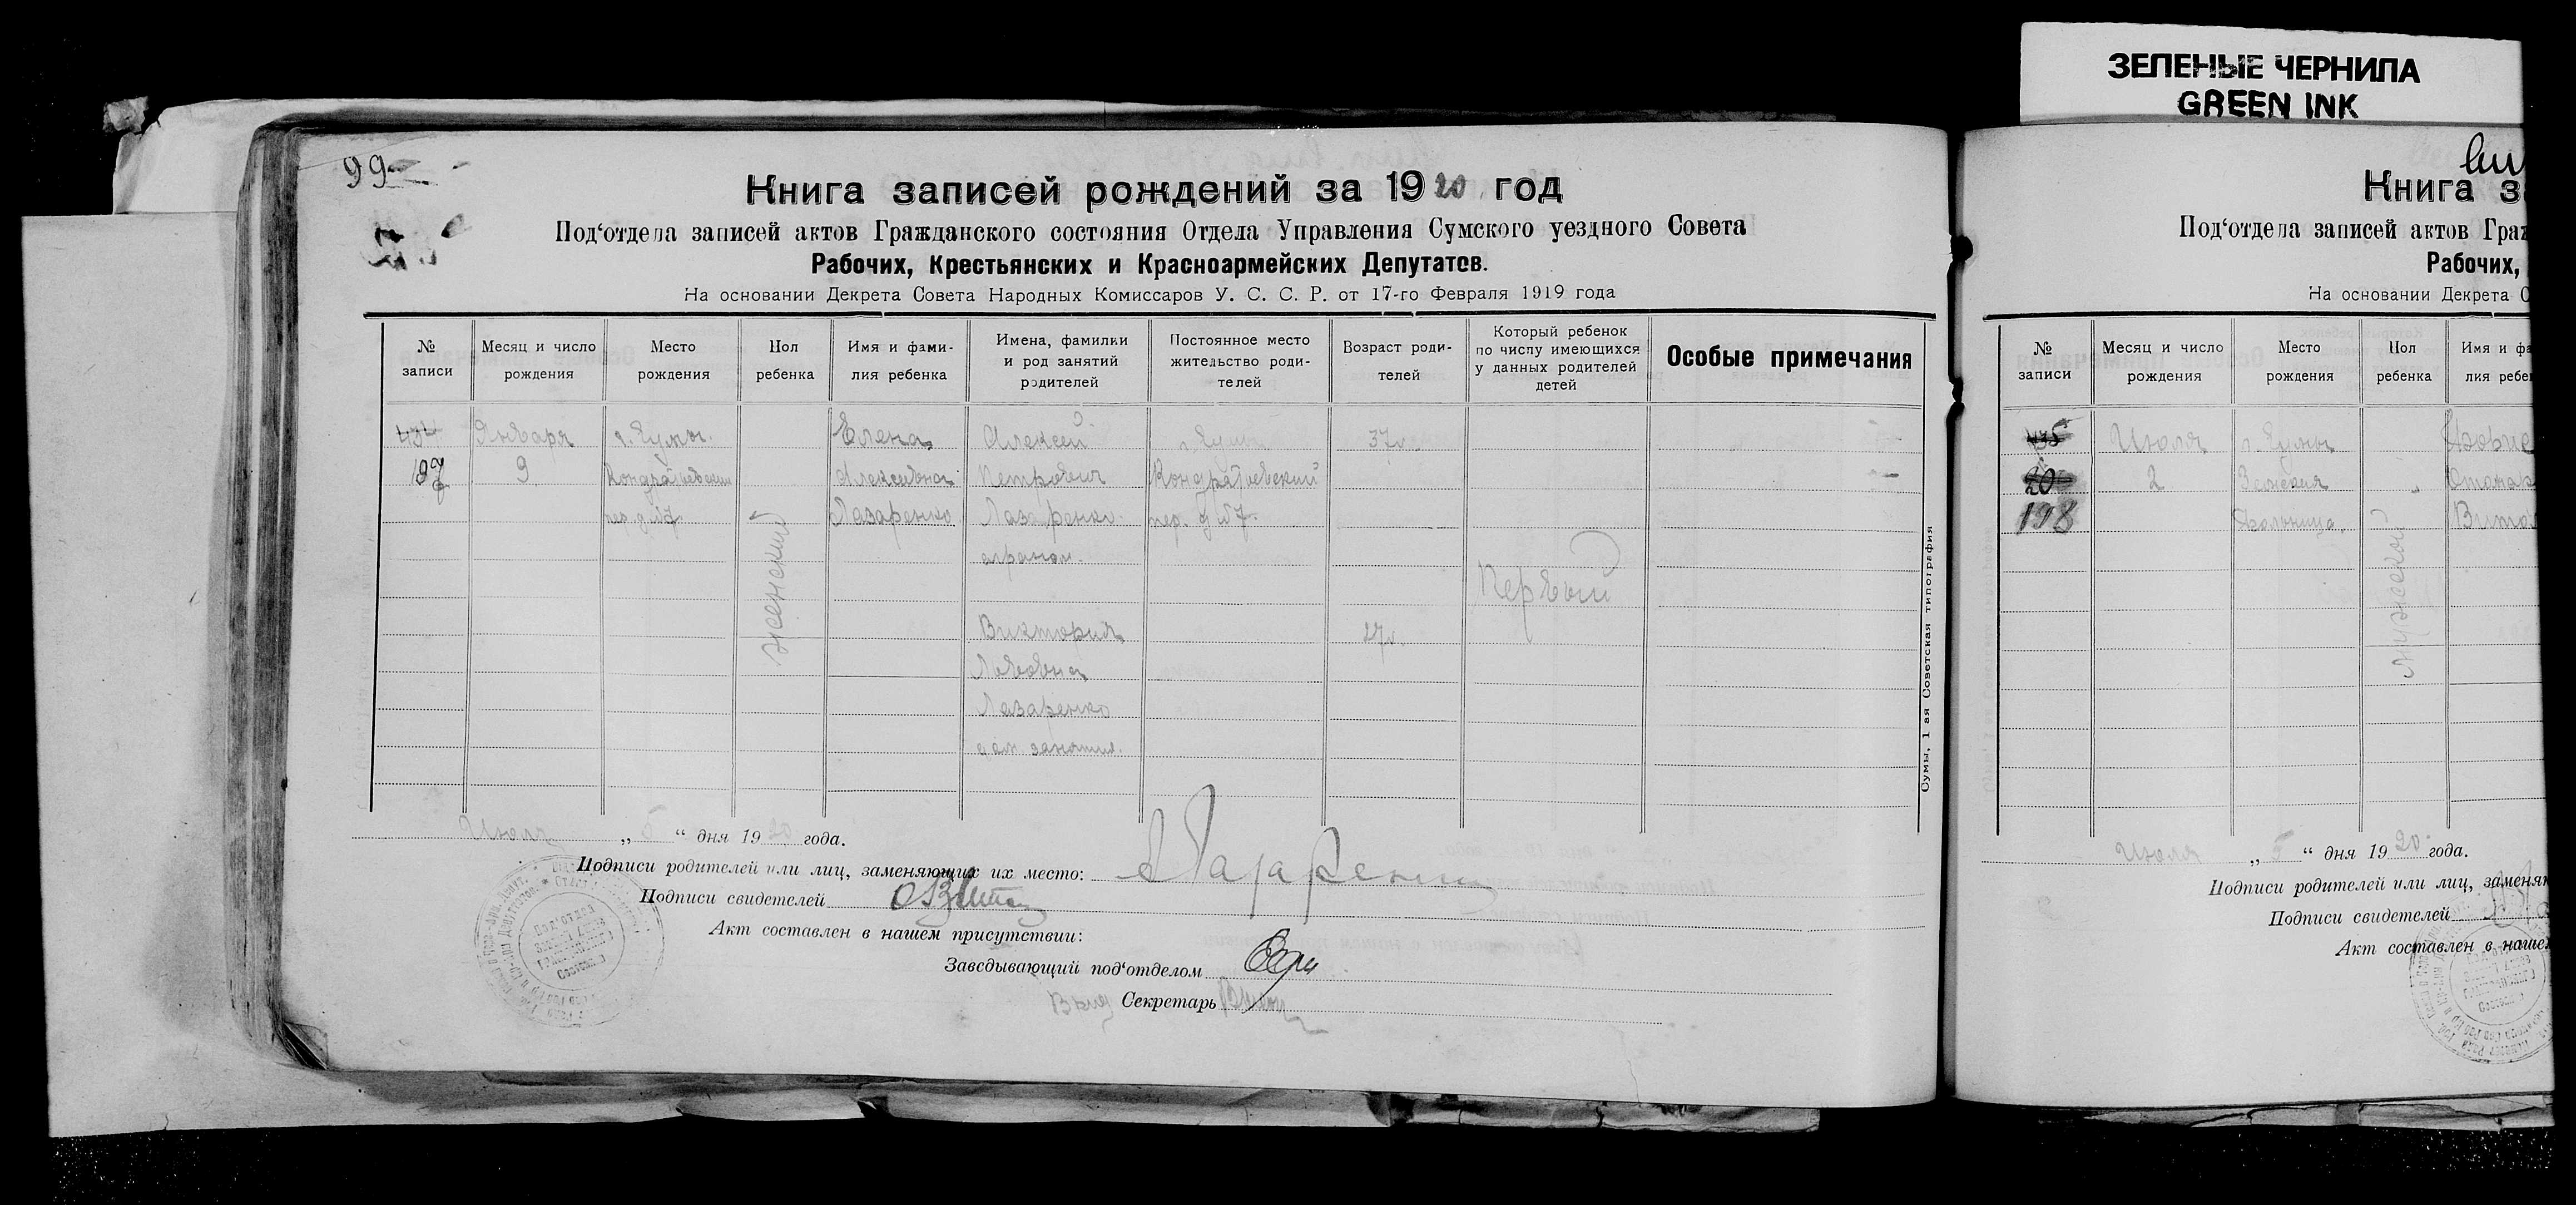 ЗЕЛЕНЫЕ ЧЕРНИЛА
GREEN INK
99
Книга записей рождений за 1920 год
Под‘отдела записей актов Гражданского состояния Отдела Управления Сумского уездного Совета
Рабочих, Крестьянских и Красноармейских Депутатов.
На основании Декрета Совета Народных Комиссаров У. С. С. Р. от 17-го Февраля 1919 года
№ записи
Месяц и число рождения
Место рождения
Пол ребенка
Имя и фами-
лия ребенка
Имена, фамилки
и род занятий
родителей
Постоянное место
жительство роди-
телей
Возраст роди-
телей
Который ребенок
по числу имеющихся
у данных родителей
детей
Особые примечания
197
Января
9
г. Сумы.
Кондратьевский
пер. д. №7
женский
Елена
Алексеевна
Лазаренко
Алексей
Петрович
Лазаренко
агроном.
Виктория
Львовна
Лазаренко
дом. занятия.
г. Сумы
Кондратьевский
пер. д №7.
37 л.
27 л.
Первый
Сумы, 1 ая Советская типография
Июля „ 5 “ дня 1920 года.
Подписи родителей или лиц, заменяющих их место: Лазаренко
Подписи свидетелей
Акт составлен в нашем присутствии:
Заведывающий под‘отделом
Секретарь
Книга з
Под‘отдела записей актов Граж
Рабочих,
На основании Декрета С
№ записи
Месяц и число рождения
Место рождения
Пол ребенка
Имя и фа
лия ребе
198
Июля
2
г. Сумы
Земская
больница.
мужской
Июля „ 5 “ дня 1920 года.
Подписи родителей или лиц, заменяю
Подписи свидетелей
Акт составлен в нашем